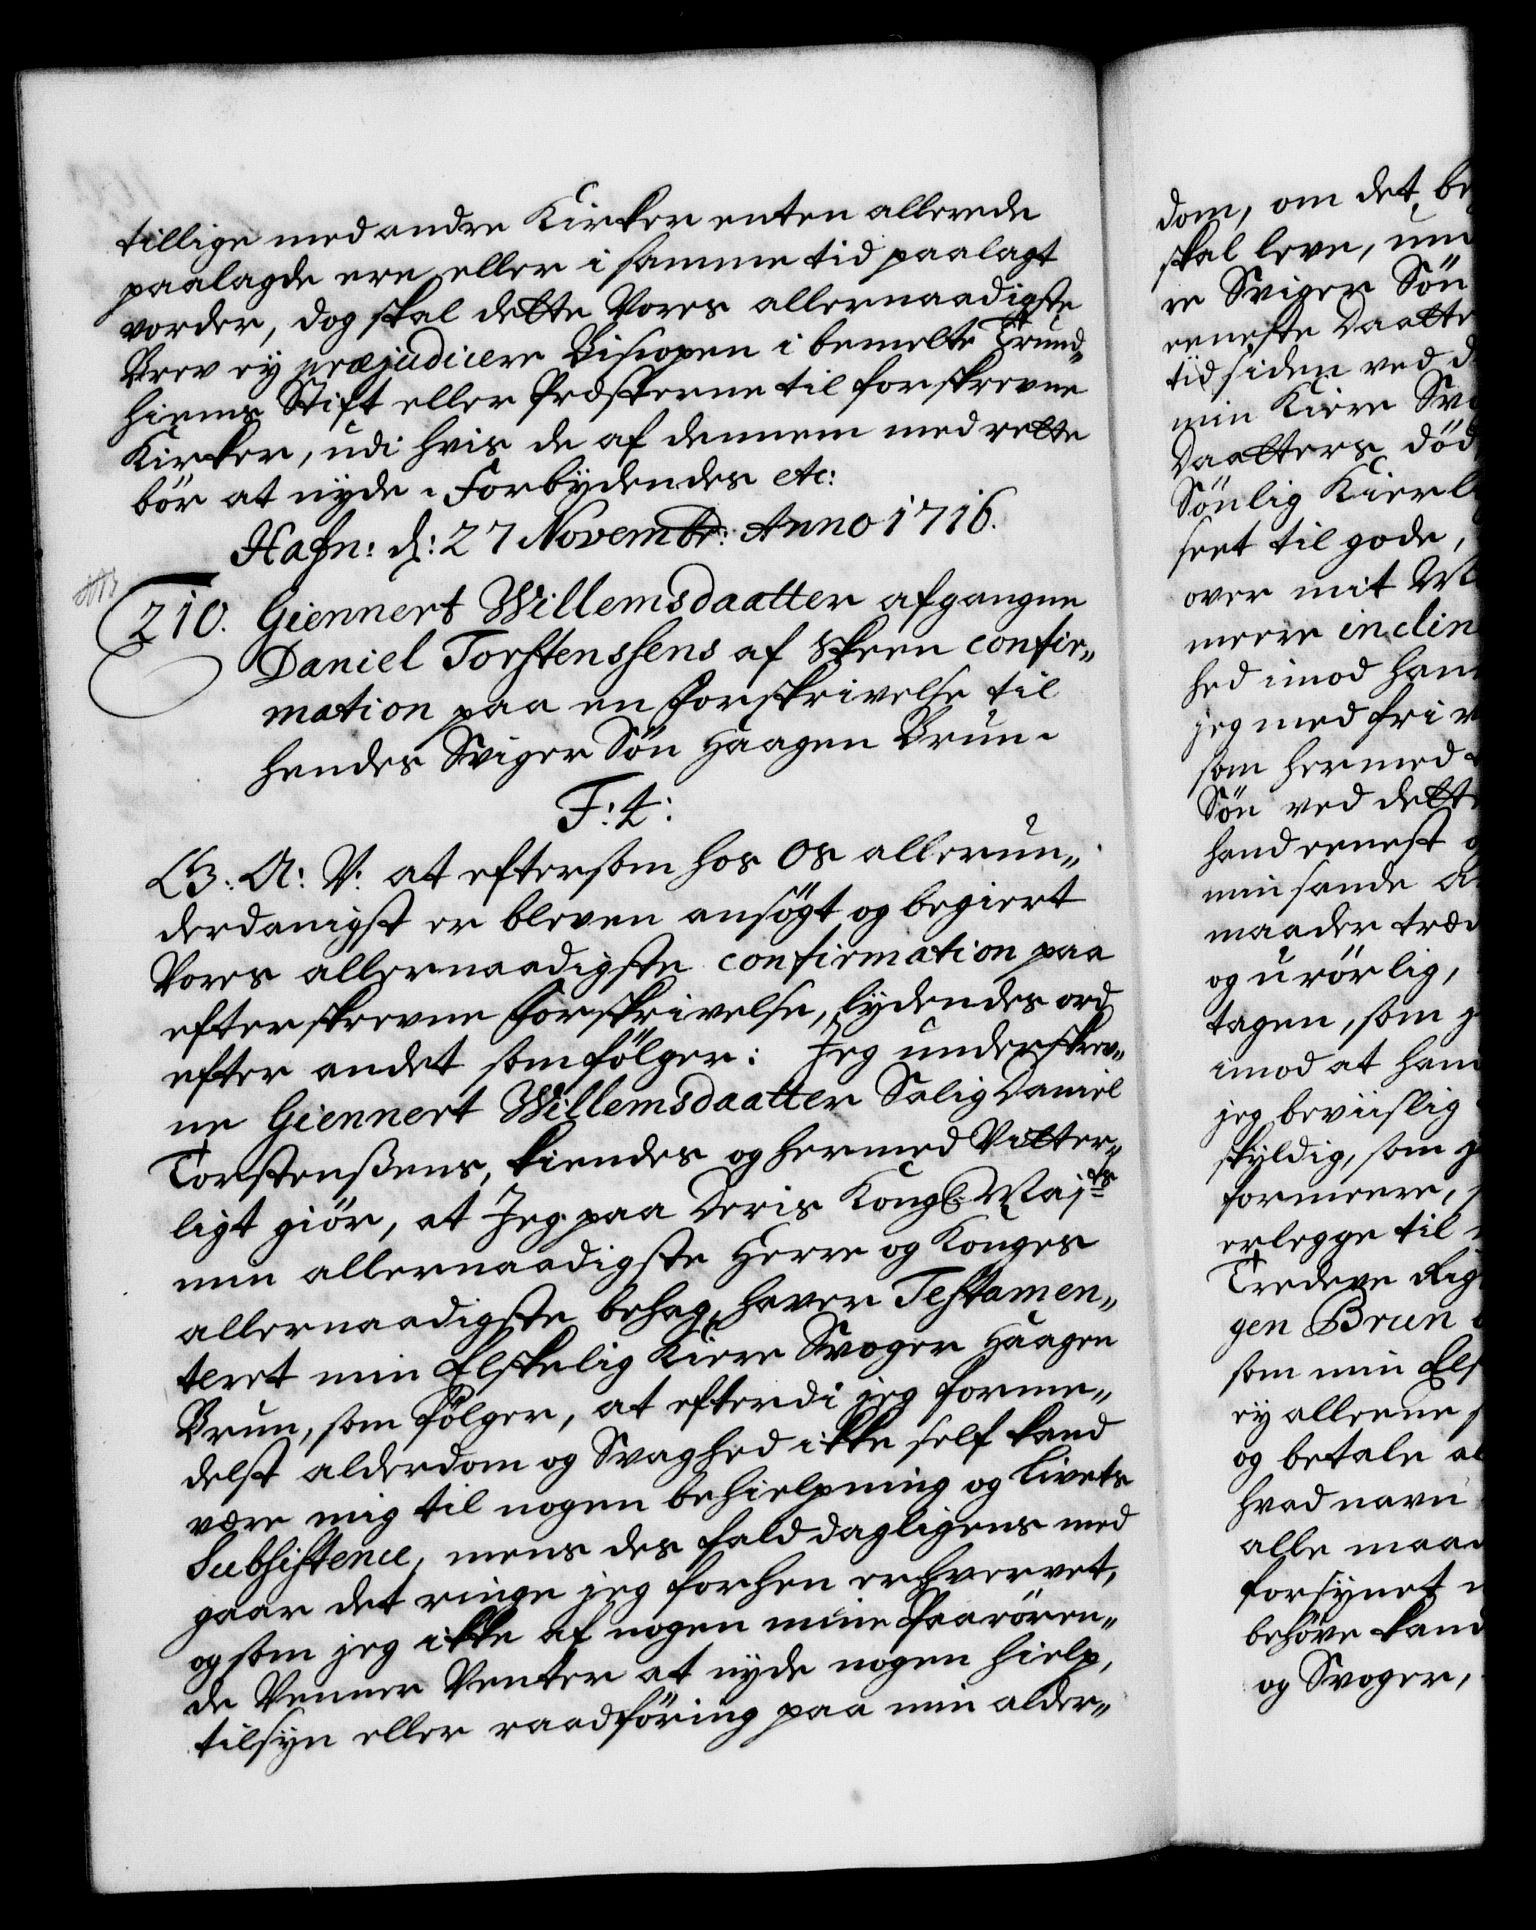 tillige med andre Kirker enten allerede
paalagde ere eller i samme tid paalagt
vorder, dog skal dette Vores allernaadigste
Brev ej præjudicere Biscopen i bemelte Trund„
hiems Stift eller Præsterne til forskrevne
Kirker, udi hvis de af dennem med rette
bör at nyde. Forbydendes etc:
Hafn: d: 27 Novembr: Anno 1716.
210. Giennert Willemsdaatter afgangne
Daniel Torstenssens af Skeen confir„
mation paa en forskrivelse til
hendes Sviger Sön Haagen Brun.
F: 4:
G: A: V. at eftersom hos Os allerun„
derdanigst er bleven ansögt og begiert
Vores allernaadigste confirmation paa
efterskrevne forskrivelse, lydendes ord
efter andet som fölger: Jeg underskrev„
ne Giennert Willemsdaatter Salig Daniel
Torstenßens, kiendes og hermed Vitter„
ligt giör, at Jeg paa Deris Kongl. Majts
min allernaadigste Herre og Konges
allernaadigste behag, haver Testamen„
teret min Elskelig Kiere Svoger Haagen
Brun, som fölger, at efterdi jeg forme„
delst alderdom og Svaghed ikke self kand
være mig til nogen behielpning og Livets
Subsistence, mens des fald dagligens med
gaar det ringe jeg forhen erhvervet,
og som jeg ikke af nogen mine Paarören„
de Venner Venter at nyde nogen hielp,
tilsyn eller raadföring paa min alder„
dom, om det be
skal leve, un
re Sviger Sön
eeneste Daatte
tid siden ved d
min Kiere Sv
Daatters död
Sönlig Kierl
seet til gode,
over mit
meere inclin
hed imod han
jeg med fri
som hermed
Sön ved dette
hand eenest
min sande A
maader træd
og urörlig,
tagen, som
imod at han
jeg beviislig
skyldig, som
formeere,
erlegge til
Tredeve Rig
gen Brun
som min Els
ej alleene
og betale al
hvad navn
alle maad
forsynet
behöve kand
og Svoger,